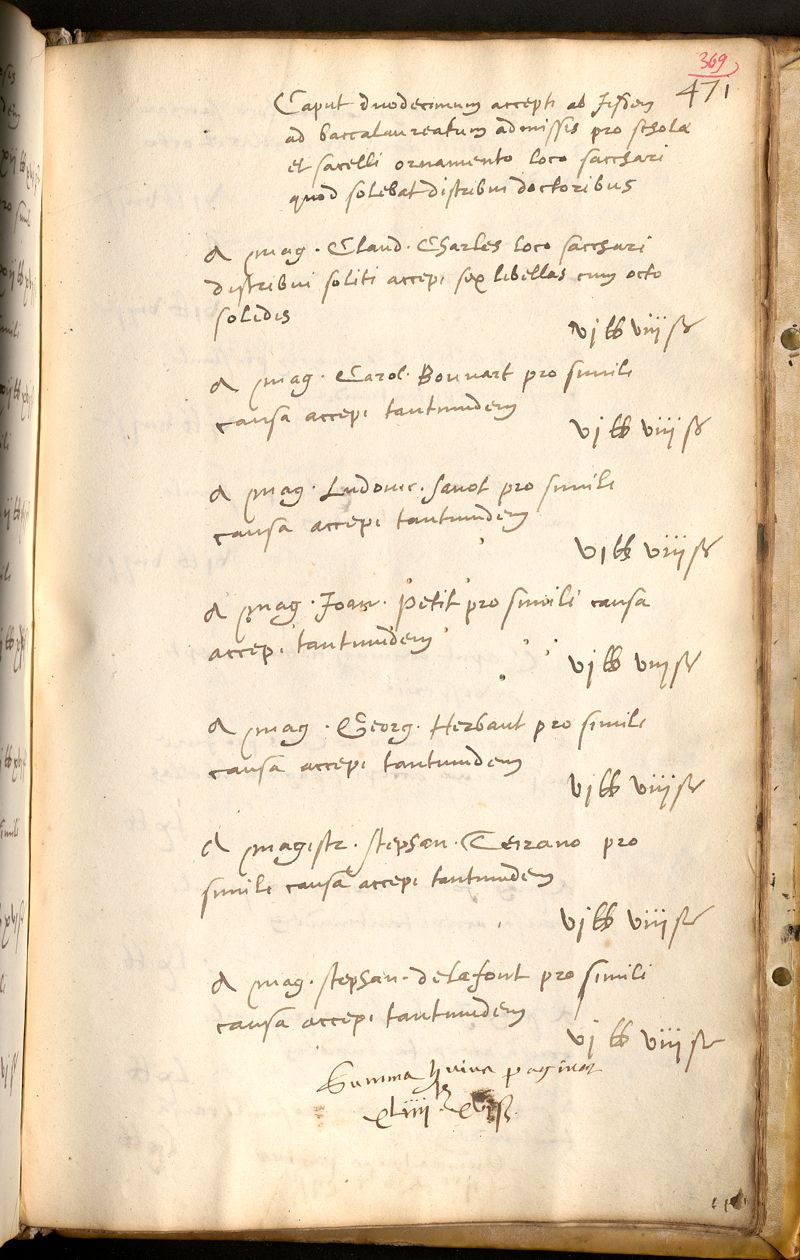 369
471
Caput duodecimum accepti ab iisdem
ad baccalaureatum admissis pro scholæ
et sacelli ornamento loco sacchari
quod solebat distribui doctoribus
A mag. Claud. Charles loco sacchari
distribui soliti accepi sex libellas cum octo
solidis
vj lb viij s
A mag. Carol. Bouvart pro simili
causa accepi tantumdem
vj lb viij s
A mag. Ludovic. Savot pro simili
causa accepi tantumdem
vj lb viij s
A mag. Joan. Petit pro simili causa
accepi tantumdem
vj lb viij s
A mag. Georg. Herbaut pro simili
causa accepi tantumdem
vj lb viij s
A magistr. stephan. pro
simili causa accepi tantumdem
vj lb viij s
A mag. stephan. delafont pro simili
causa accepi tantumdem
vj lb viij s
Summa huius paginæ
xliiij lb xvj s